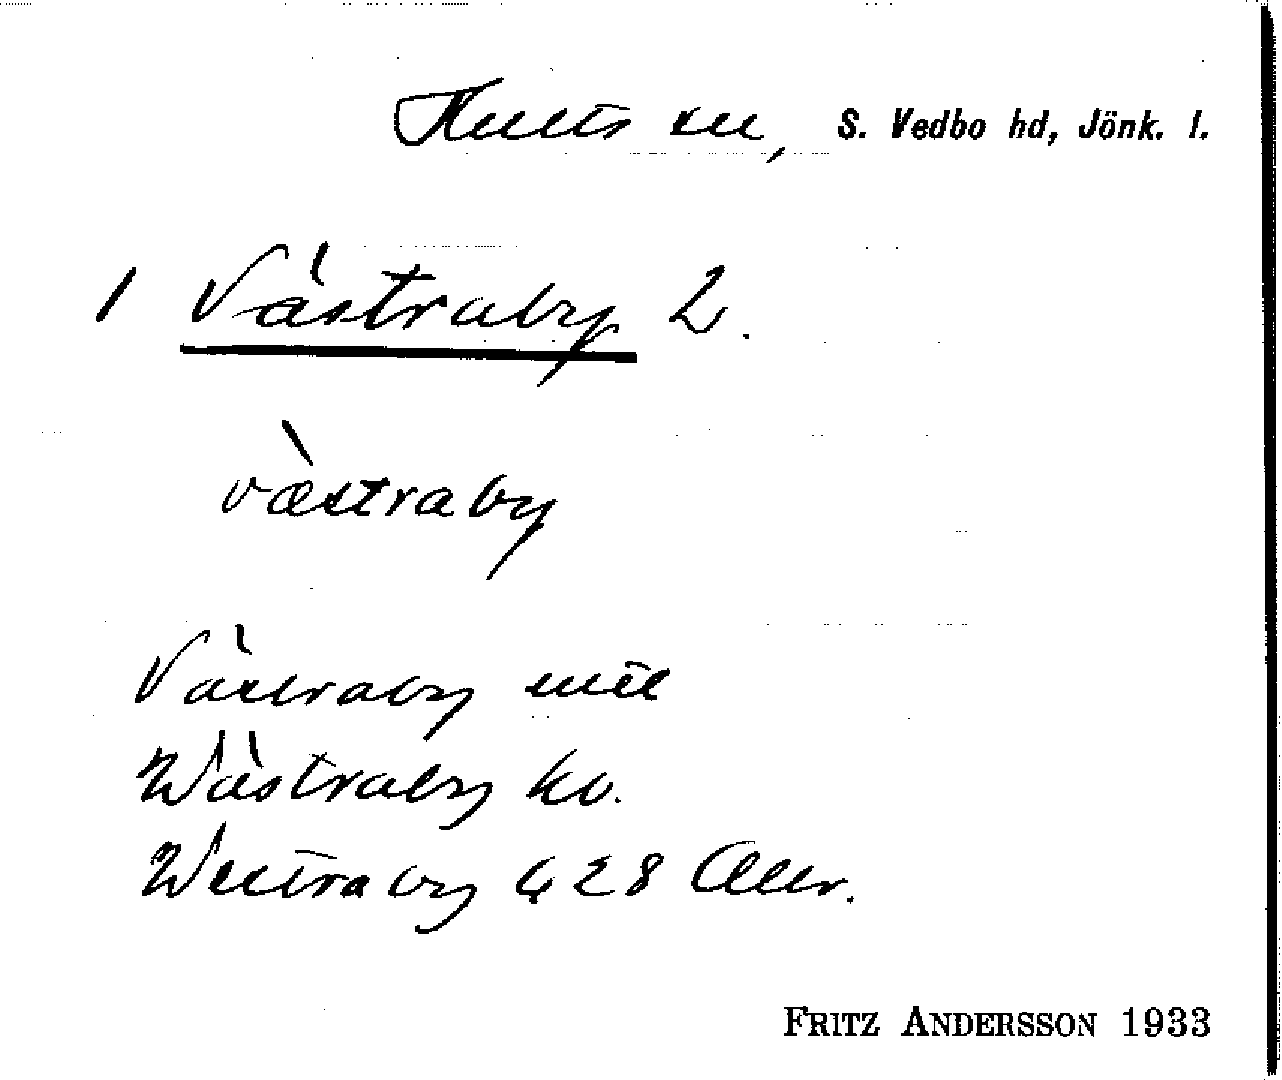 Hults sn, S. Vedbo hd, Jönk. l.
1 Västraby 2.
vàstraby
Västraby mtl
Wästraby kv.
Westraby 428 Allr.
FRITZ ANDERSSON 1933